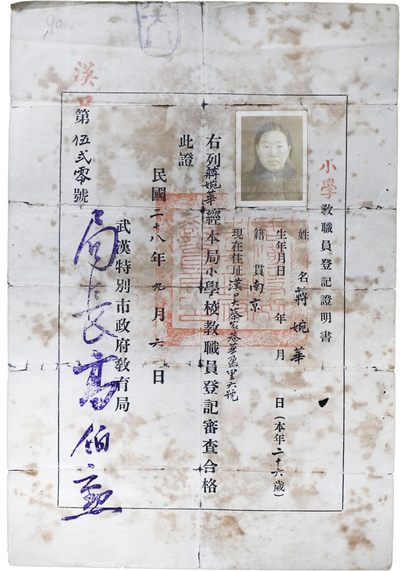 小學教職員登記證明書
姓名 蔣婉華
生年月日 年 月 日(本年二十六歲)
籍貫 南京
現在住址 漢口大蔡家巷 里六號
右列蔣婉華經本局小學校教職員登記審查合格
此證
民國二十八年九月六日
武漢特別市政府教育局
局長高伯勳
漢口
第伍弍零號